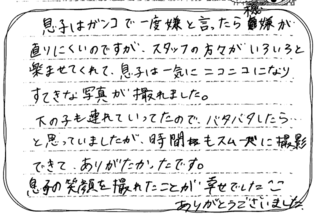 息子はガンコで一度嫌と言ったら機嫌が
直りにくいのですが、スタッフの方々がいろいろと
楽ませてくれて、息子は一気にニコニコになり
すてきな写真が撮れました。
下の子も連れていってたので、バタバタしたら…
と思っていましたが、時間もスムーズに撮影
できて、ありがたかったです。
息子の笑顔を撮れたことが幸せでした^^
ありがとうございました